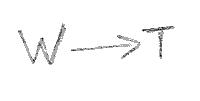 W → T